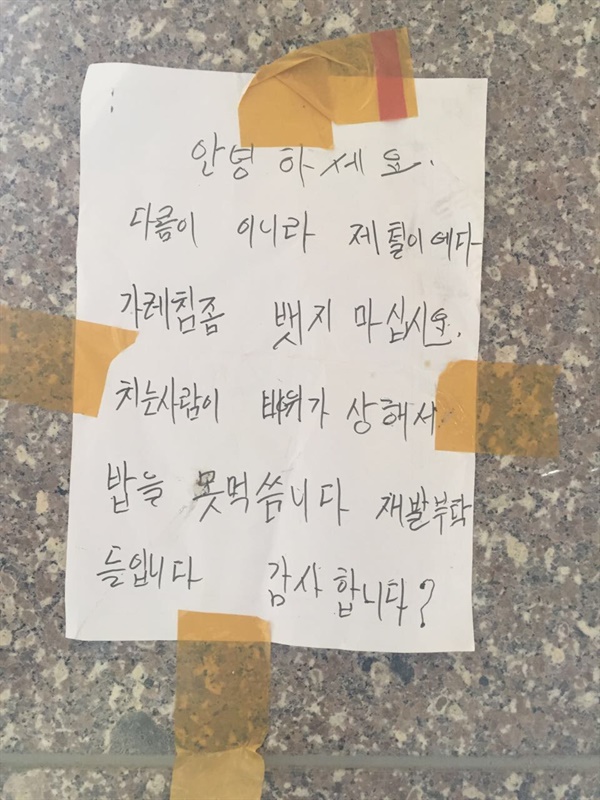 안녕 하세요.
다름이 아니라 제털이에다
가레침좀 뱃지 마십시요.
치는사람이 비위가 상해서
밥을 못먹씀니다 재발부탁
들입니다 감사 합니다?